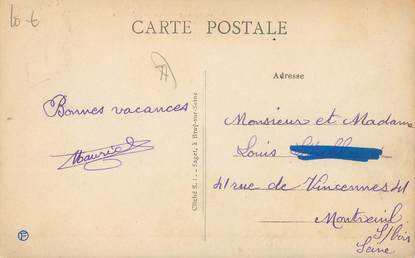 10 €
CARTE POSTALE
Adresse
Bonnes vacances
Maurice
Cliché E. 1. - Pagel, à Bray-sur-Seine
Monsieur et Madame
Louis
41 rue de Vincennes 41
Montreuil
S/bois
Seine